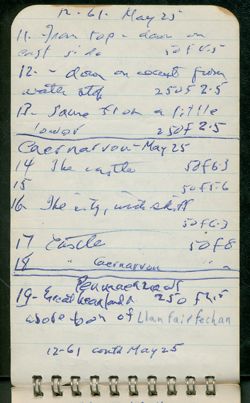 12-61. May 25
11. From top - down on
east side 50 f 4.5
12. - down on ascent from
water stop 250 f 2.5
13 - Same from a little
lower 250 f 2.5
Caernarvon - May 25
14 The castle 50 f 6.3
15 50 f 5.6
16 The city, with
50 f 6.3
17 Castle 50 f 8
18 " Caernarvon "
Penmaenmawr
19 - 250 f 4.5
above town of Llanfairfechan
12-61 contd May 25